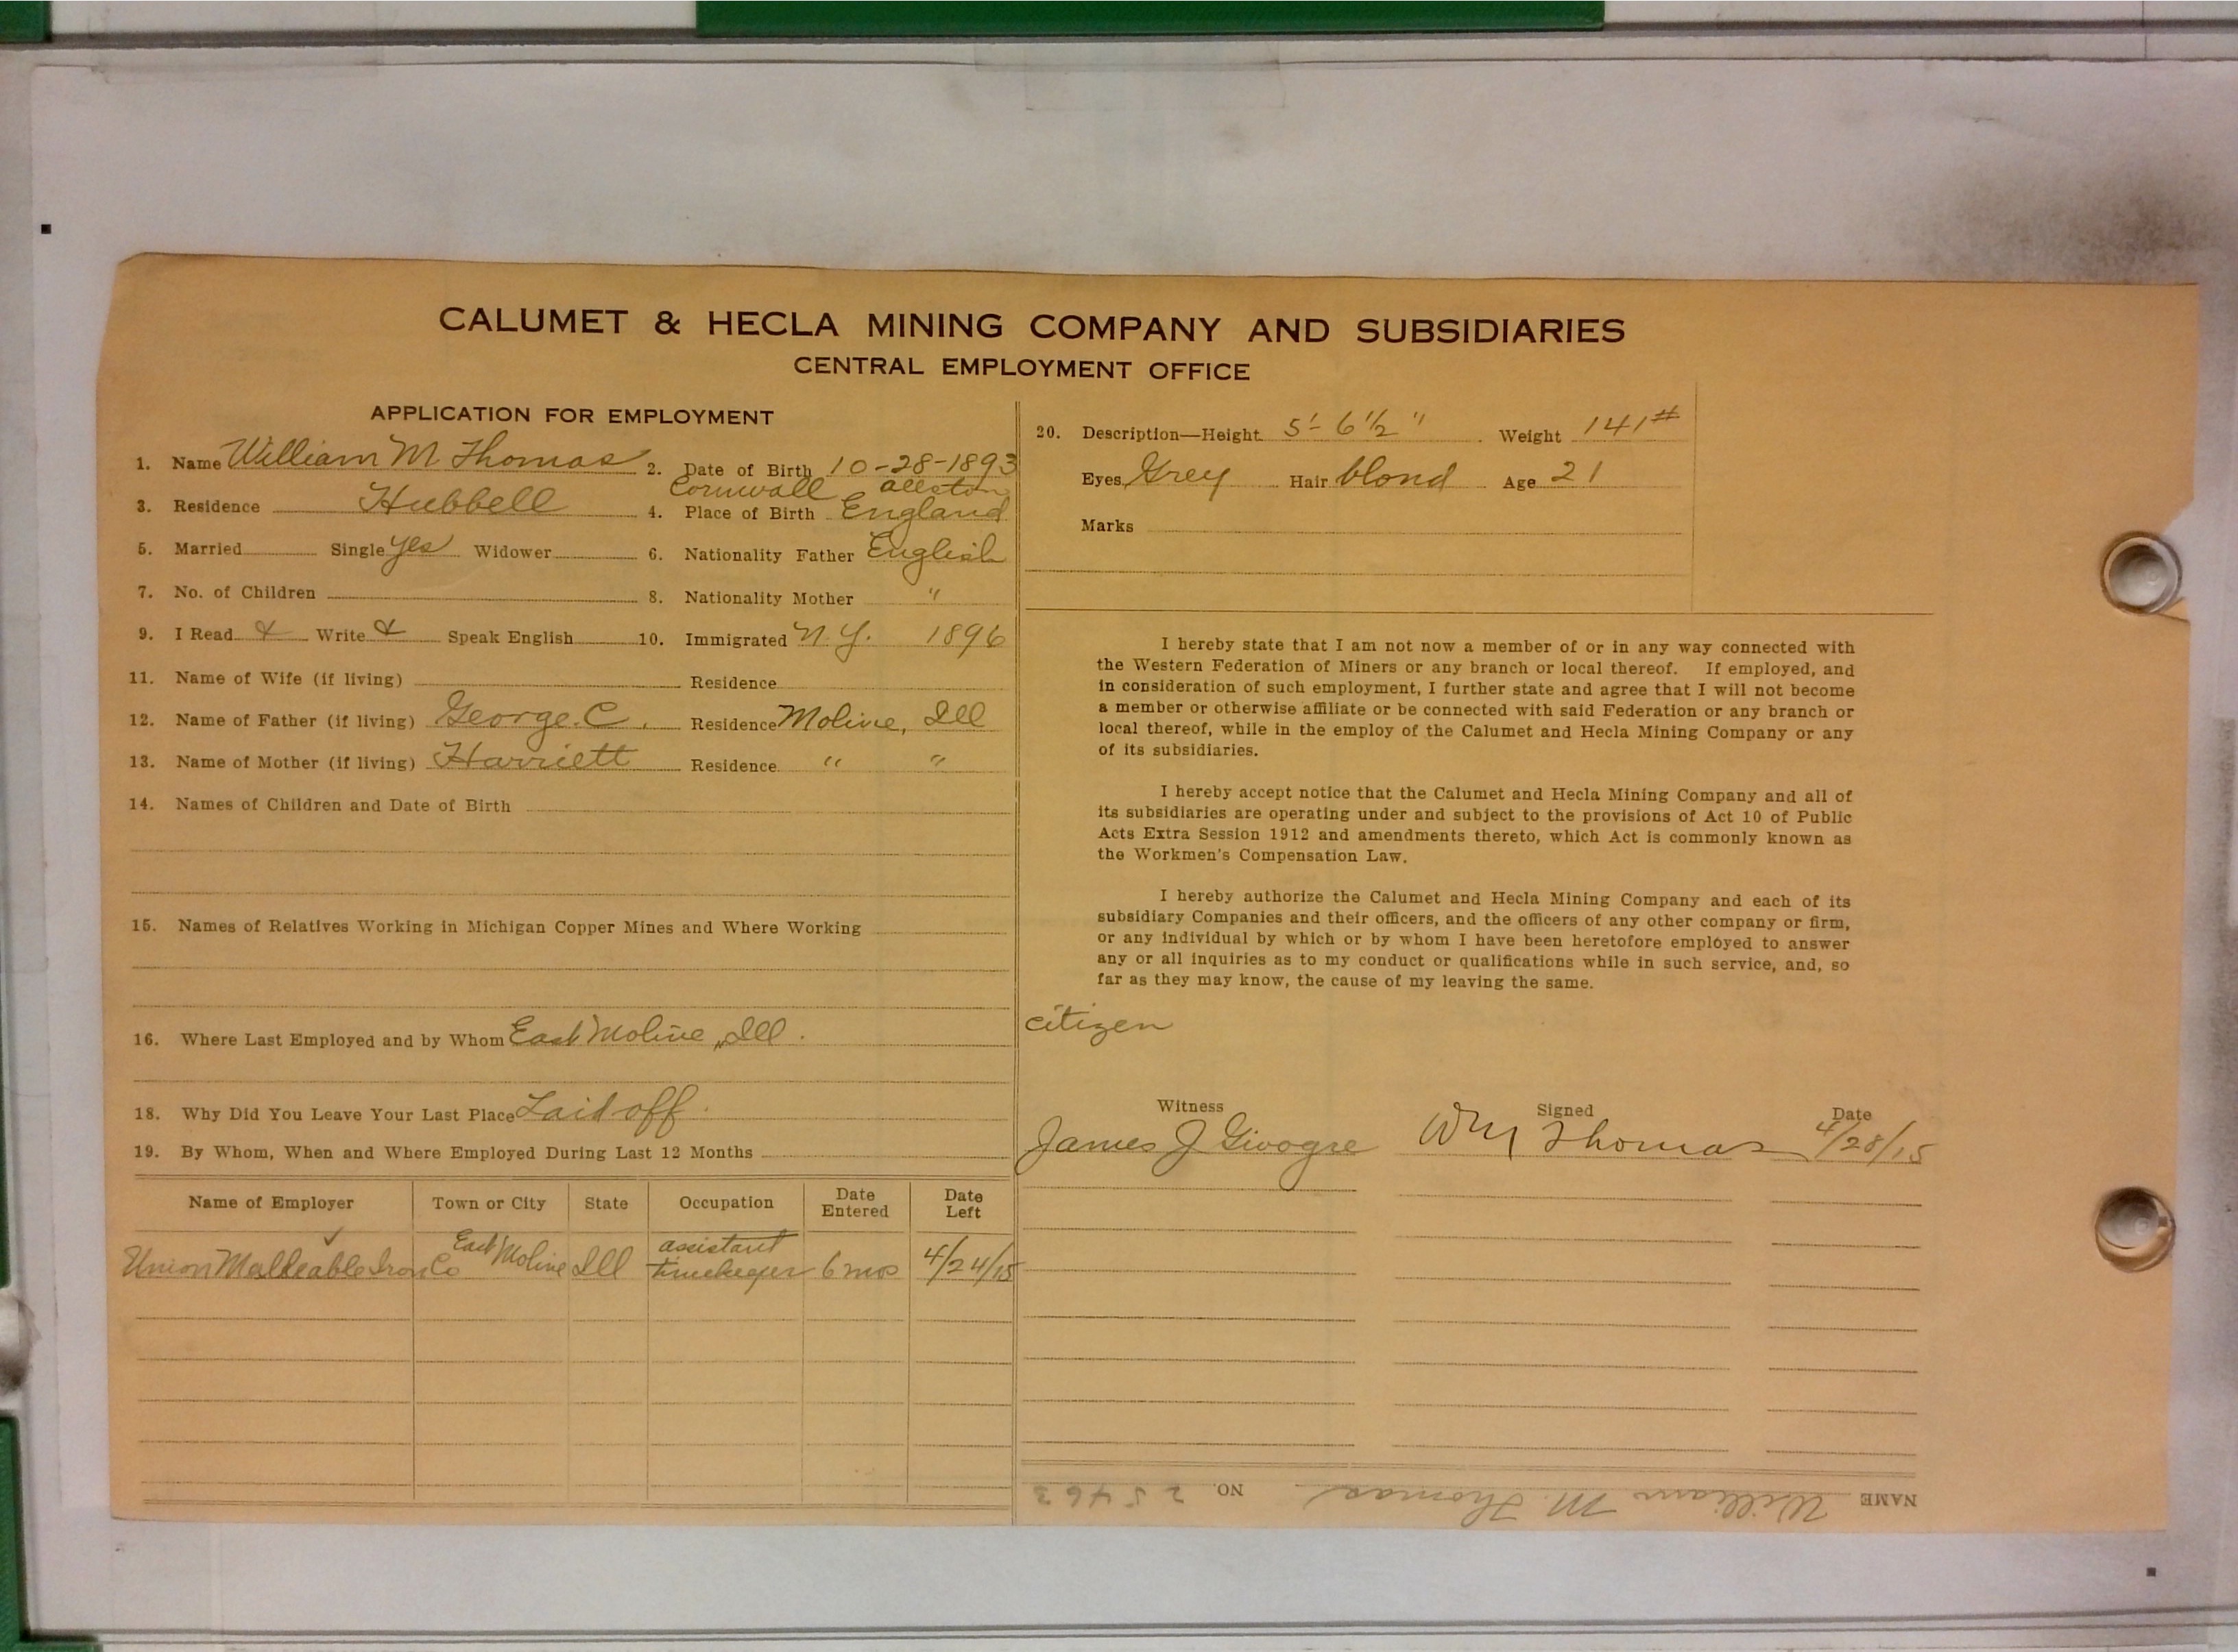 CALUMET & HECLA MINING COMPANY AND SUBSIDIARIES
CENTRAL EMPLOYMENT OFFICE
APPLICATION FOR EMPLOYMENT
1. Name William M Thomas 2. Date of Birth 10-28-1893
Cornwall
3. Residence Hubbell 4. Place of Birth England
5. Married Single yes Widower 6. Nationality Father English
7. No. of Children 8. Nationality Mother "
9. I Read & Write & Speak English 10. Immigrated N.Y. 1896
11. Name of Wife (if living) Residence
12. Name of Father (if living) George C. Residence Moline, Ill
13. Name of Mother (if living) Harriett Residence " "
14. Names of Children and Date of Birth
15. Names of Relatives Working in Michigan Copper Mines and Where Working
16. Where Last Employed and by Whom East Moline, Ill.
18. Why Did You Leave Your Last Place Laid off.
19. By Whom, When and Where Employed During Last 12 Months
Name of Employer Town or City State Occupation Date Entered Date Left
Union Malleable Iron Co East Moline Ill assistant timekeeper 6 mos 4/24/15
20. Description—Height 5'- 6 1/2 " Weight 141#
Eyes Grey Hair blond Age 21
Marks
I hereby state that I am not now a member of or in any way connected with
the Western Federation of Miners or any branch or local thereof. If employed, and
in consideration of such employment, I further state and agree that I will not become
a member or otherwise affiliate or be connected with said Federation or any branch or
local thereof, while in the employ of the Calumet and Hecla Mining Company or any
of its subsidiaries.
I hereby accept notice that the Calumet and Hecla Mining Company and all of
its subsidiaries are operating under and subject to the provisions of Act 10 of Public
Acts Extra Session 1912 and amendments thereto, which Act is commonly known as
the Workmen's Compensation Law.
I hereby authorize the Calumet and Hecla Mining Company and each of its
subsidiary Companies and their officers, and the officers of any other company or firm,
or any individual by which or by whom I have been heretofore employed to answer
any or all inquiries as to my conduct or qualifications while in such service, and, so
far as they may know, the cause of my leaving the same.
citizen
Witness Signed Date
James J Givogre Wm Thomas 4/28/15
NAME William M. Thomas NO. 25463